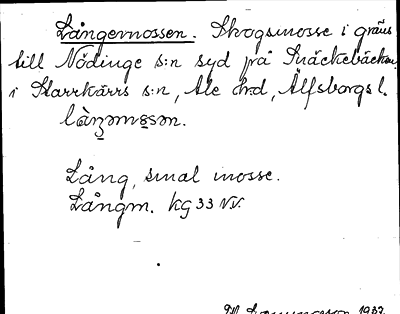 Långemossen. Skogsmosse i gräns
till Nödinge s:n syd frå Knäckebäcken
i Starrkärrs s:n, Ale hrd, Älfsborgs l.
Lång, smal mosse.
Långm. kg 33 NV.
1937